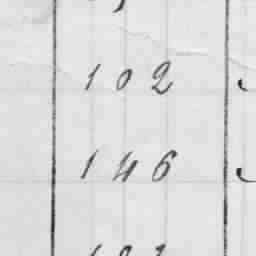 102
146